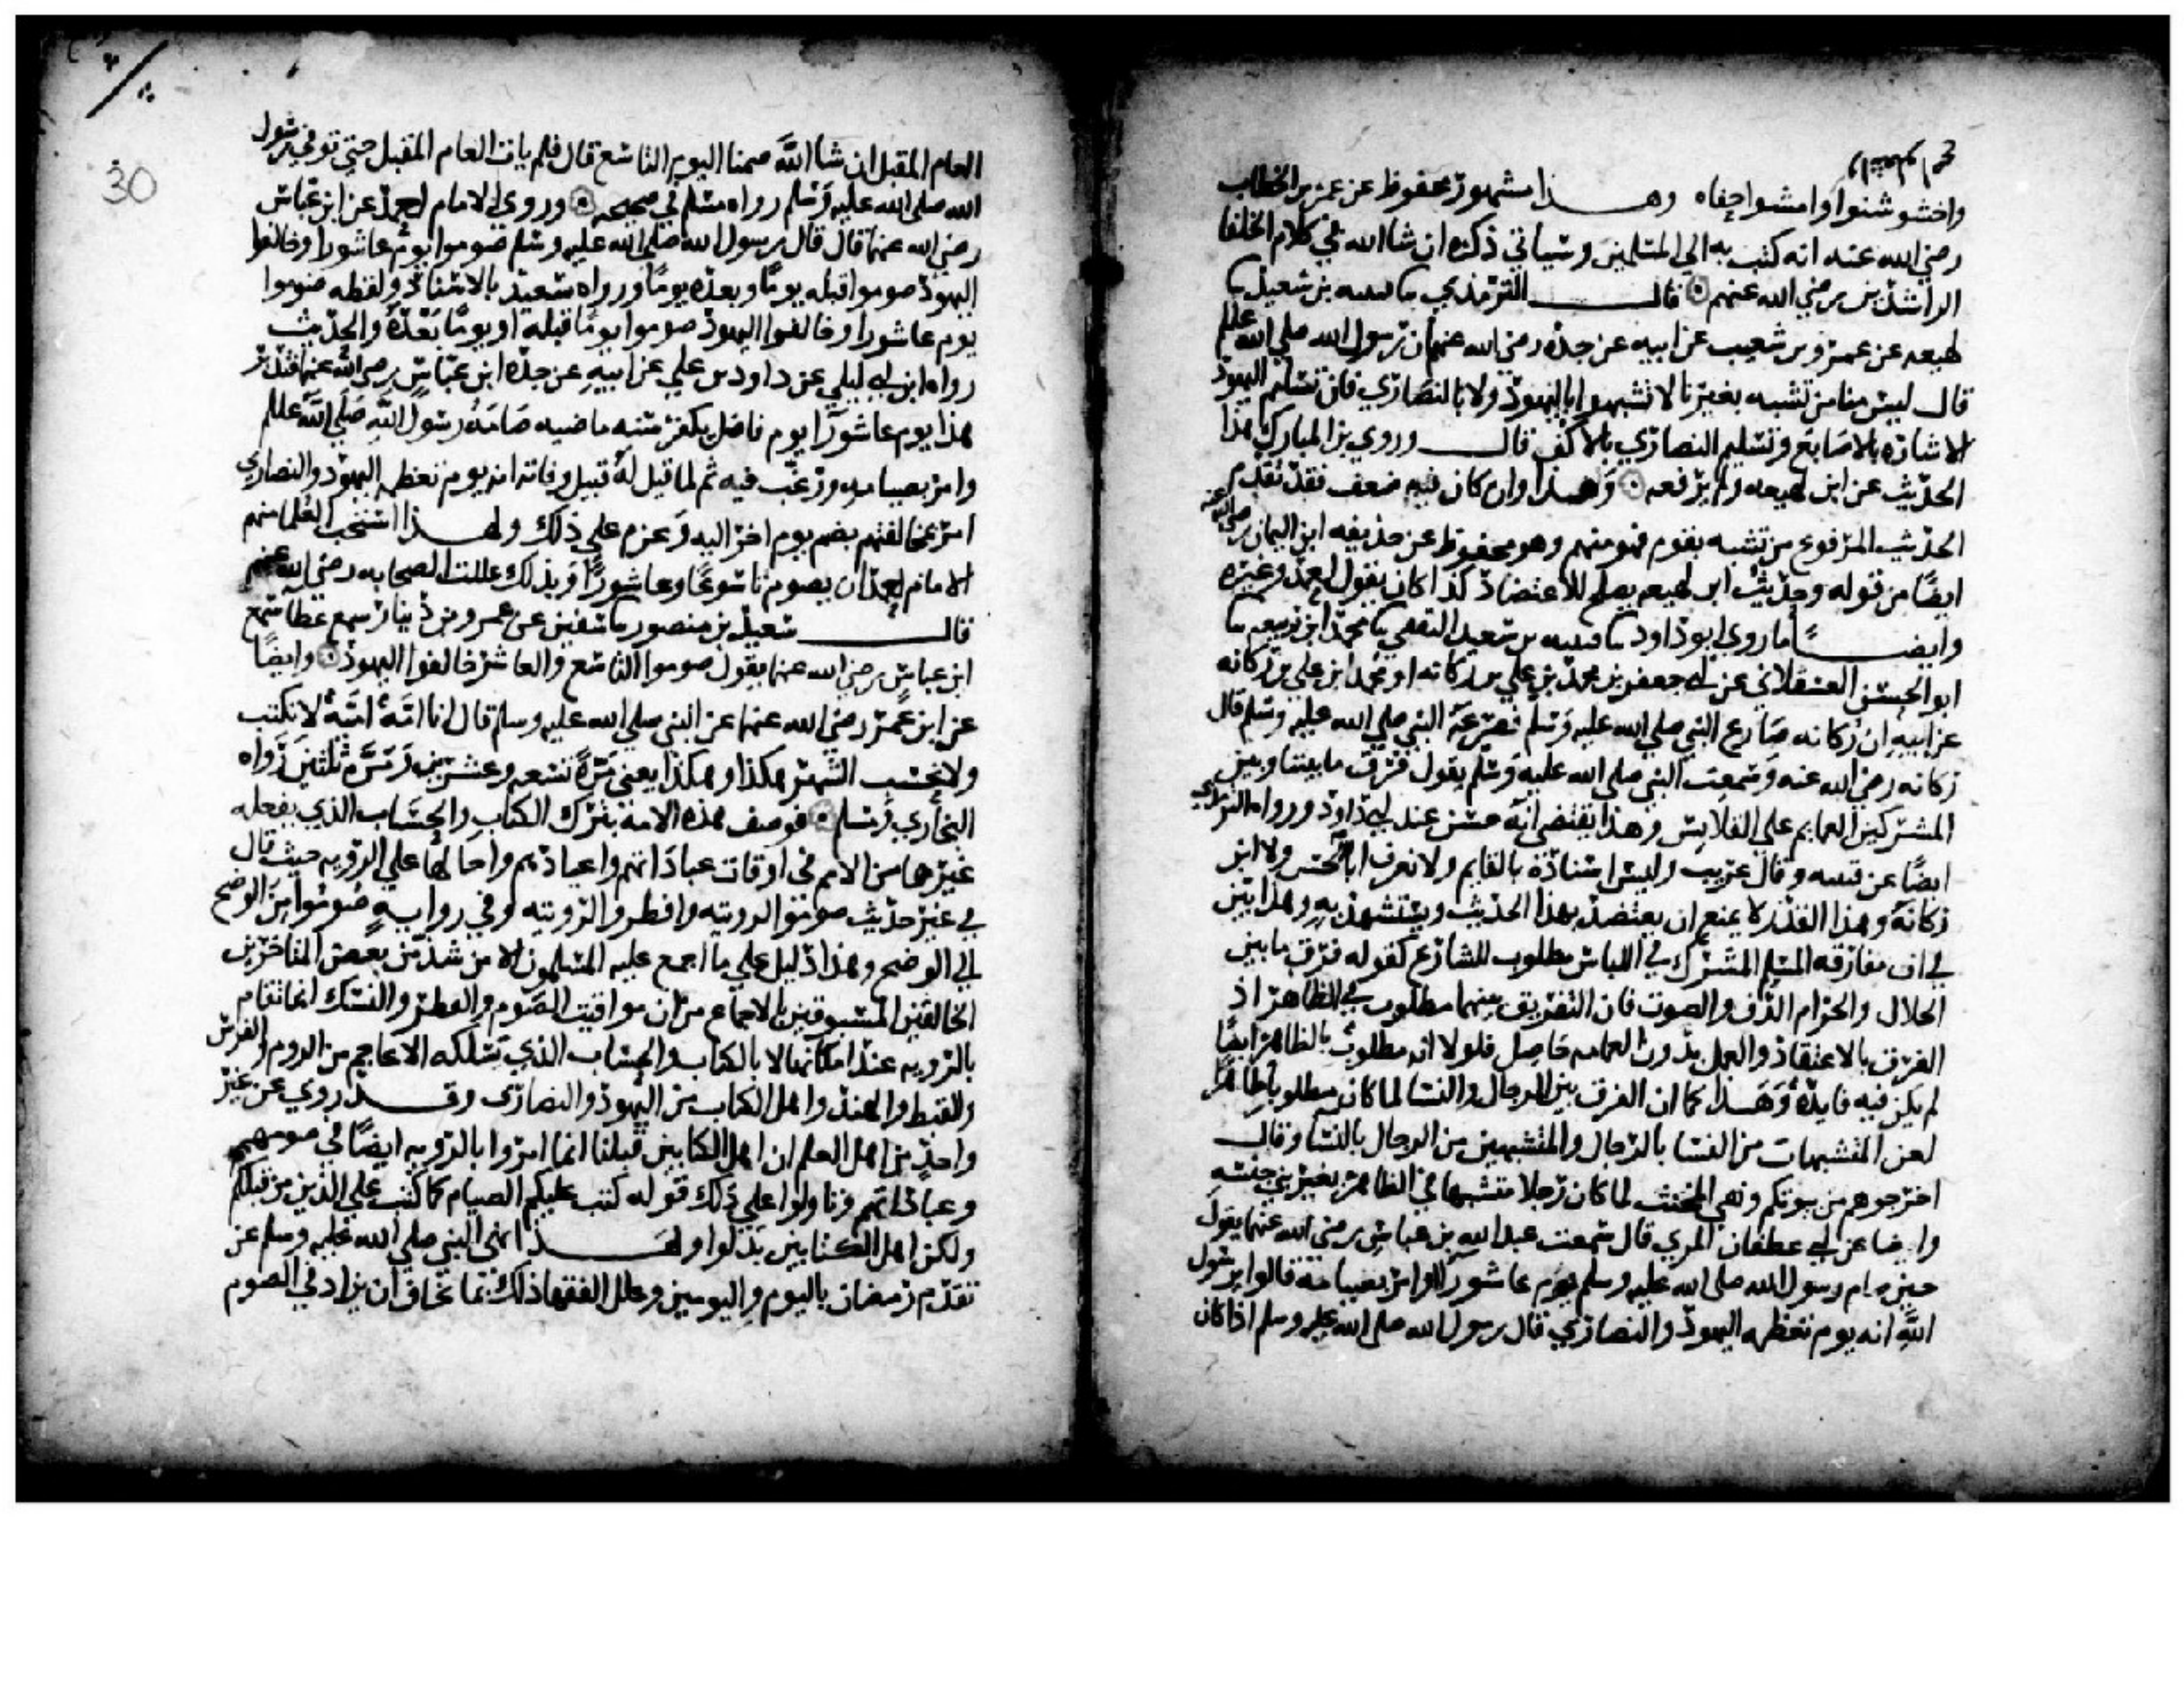 واخشوشنوا وامشوا حفاه وهذا مشهور محفوظ عن عمر بن الخطاب
رضي الله عنه انه كتب به الي المسلمين وسياتي ذكره ان شا الله في كلام الخلفا
الراشدين رضي الله عنهم قال الترمذي سا قتيبه بن سعيد سا
لهيعه عن عمرو بن شعيب عن ابيه عن جده رضي الله عنهم ان رسول الله صلي الله علم
قال ليس منا من تشبه بغيرنا لا تشبهوا باليهود ولا بالنصاري فان تسليم اليهود
الاشاره بالاصابع وتسليم النصاري بالاكف قال وروي بن المبارك هذا
الحديث عن ابن لهيعه ولم يرفعه وهذا وان كان فيه ضعف فقد تقدم
الحديث المرفوع من تشبه بقوم فهو منهم وهو محفوظ عن حذيفه ابن اليمان رضي الله عنه
ايضًا من قوله وحديث ابن لهيعه يصلح للاعتضاد كذا كان يقول احمد وغيره
وايضًا ما روي ابو داود سا قتيبه بن سعيد الثقفي سا محمد ابن ربيعه سا
ابو الحسن العسقلاني عن ابي جعفر بن محمد بن علي بن ركانه او محمد ابن علي بن ركانه
عن ابيه ان ركانه صارع النبي صلي الله عليه وسلم فصرعه النبي صلي الله عليه وسلم قال
ركانه رضي الله عنه وسمعت النبي صلي الله عليه وسلم يقول فرق ما بيننا وبين
المشركين العمايم علي القلانس وهذا يقتضي انه حسن عند ابي داود ورواه الترمذي
ايضًا عن قتيبه وقال غريب وليس اسناده بالقايم ولا نعرف ابا الحسن ولا ابن
ركانه وهذا القدر لا يمنع ان يعتضد بهذا الحديث ويستشهد به وهذا بين
في ان مفارقه المسلم المشرك في اللباس مطلوب للشارع كقوله فرق ما بين
الحلال والحرام الدف والصوت فان التفريق بينهما مطلوب في الظاهر اذ
الفرق بالاعتقاد والعمل بدون العمامه حاصل فلولا انه مطلوب بالظاهر ايضًا
لم يكن فيه فايده وهذا كما ان الفرق بين الرجال والنسا لما كان مطلوبا ظاهرًا
لعن المتشبهات من النسا بالرجال والمتشبهين من الرجال بالنسا وقال
اخرجوهم من بيوتكم ونفي المخنث لما كان رجلا متشبها في الظاهر بغير بني جنسه
وايضا عن ابي غطفان المري قال سمعت عبد الله بن عباس رضي الله عنهما يقول
حين صام رسول الله صلي الله عليه وسلم يوم عاشورا وامر بصيامه قالوا يرسول
الله انه يوم تعظمه اليهود والنصاري قال رسول الله صلي الله عليه وسلم اذا كان
30
العام المقبل ان شا الله صمنا اليوم التاسع قال فلم يات العام المقبل حتي توفي رسول
الله صلي الله عليه وسلم رواه مسلم في صحيحه وروي الامام احمد عن ابن عباس
رضي الله عنهما قال قال رسول الله صلي الله عليه وسلم صوموا يوم عاشورا وخالفوا
اليهود صوموا قبله يومًا وبعده يومًا ورواه سعيد بالاسناد ولفظه صوموا
يوم عاشورا وخالفوا اليهود صوموا يومًا قبله او يومًا بعده والحديث
رواه ابن ابي ليلي عن داود بن علي عن ابيه عن جده ابن عباس رضي الله عنهما فتدبر
هذا يوم عاشورا يوم فاضل يكفر سنه ماضيه صامه رسول الله صلي الله علم
وامر بصيامه ورغب فيه ثم لما قيل له قبيل وفاته انه يوم تعظمه اليهود والنصاري
امر بمخالفتهم بضم يوم اخر اليه وعزم علي ذلك ولهذا استحب العلما منهم
الامام احمد ان يصوم تاسوعًا وعاشورًا وبذلك عللت الصحابه رضي الله عنهم
قال سعيد بن منصور سا سفين عن عمرو بن دينار سمع عطا سمع
ابن عباس رضي الله عنهما يقول صوموا التاسع والعاشر خالفوا اليهود وايضًا
عن ابن عمر رضي الله عنهما عن النبي صلي الله عليه وسلم قال انا امه اميه لا نكتب
ولا نحسب الشهر هكذا وهكذا يعني مره تسعه وعشرين ومره ثلثين رواه
البخاري ومسلم فوصف هذه الامه بترك الكتاب والحساب الذي يفعله
غيرها من الامم في اوقات عباداتهم واعيادهم واحالها علي الرويه حيث قال
في غير حديث صوموا لرويته وافطروا لرويته وفي روايه صوموا من الوضح
الي الوضح وهذا دليل علي ما اجمع عليه المسلمون الا من شذ من بعض المتاخرين
المخالفين المسبوقين بالاجماع من ان مواقيت الصوم والفطر والنسك انما تقام
بالرويه عند امكانها لا بالكتاب والحساب الذي يسلكه الاعاجم من الروم والفرس
والقبط والهند واهل الكتاب من اليهود والنصاري وقد روي عن غير
واحد من اهل العلم ان اهل الكتابين قبلنا انما امروا بالرويه ايضًا في صومهم
وعباداتهم وتاولوا علي ذلك قوله كتب عليكم الصيام كما كتب علي الذين من قبلكم
ولكن اهل الكتابين بدلوا ولهذا نهي النبي صلي الله عليه وسلم عن
تقدم رمضان باليوم واليومين وعلل الفقها ذلك بما يخاف ان يزاد في الصوم